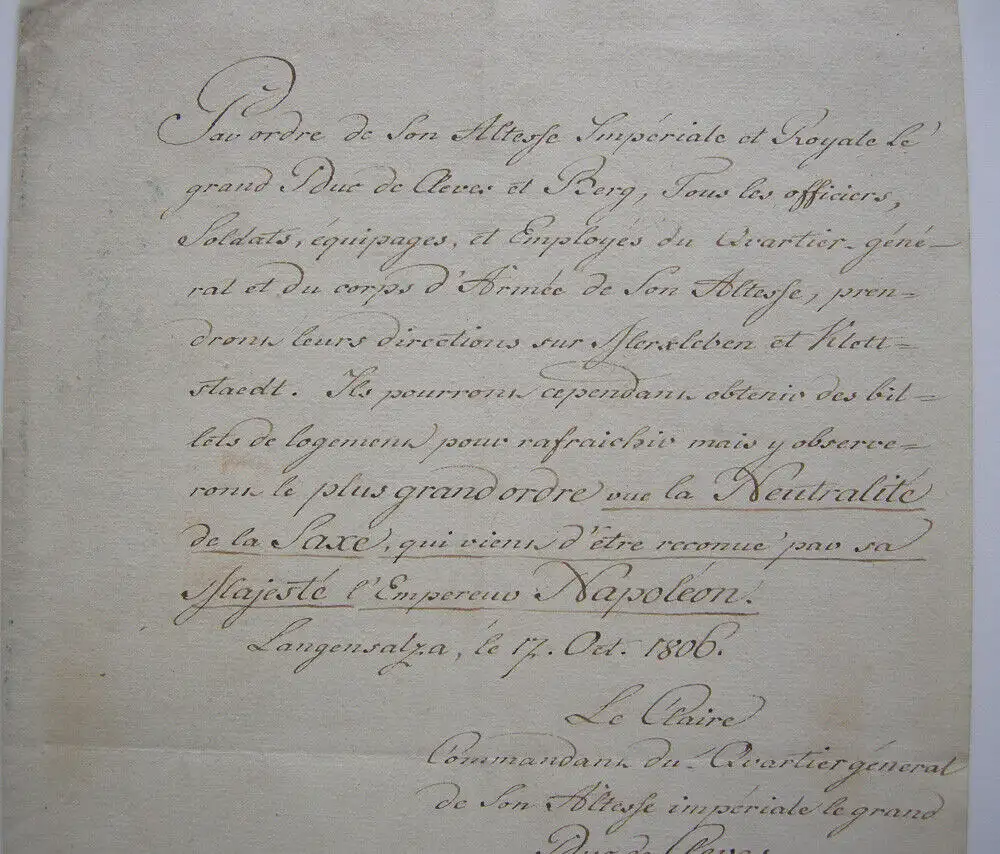 Par ordre de Son Altesse Impériale et Royale Le
grand Duc de Clèves et Berg, Tous les officiers,
Soldats, équipages, et Employés du Quartier-géné-
ral et du corps d'Armée de Son Altesse, pren=
dront leurs directions sur Merxleben et Klett=
staedt. Ils pourront cependant obtenir des bil=
lets de logement pour rafraichir mais y observe=
ront le plus grand ordre vue la Neutralité
de la Saxe, qui vient d'être reconue par sa
Majesté l'Empereur Napoléon.
Langensalza, le 17. Oct. 1806.
Le Claire
Commandant du Quartier géneral
de Son Altesse impériale le grand
Duc de Cleves